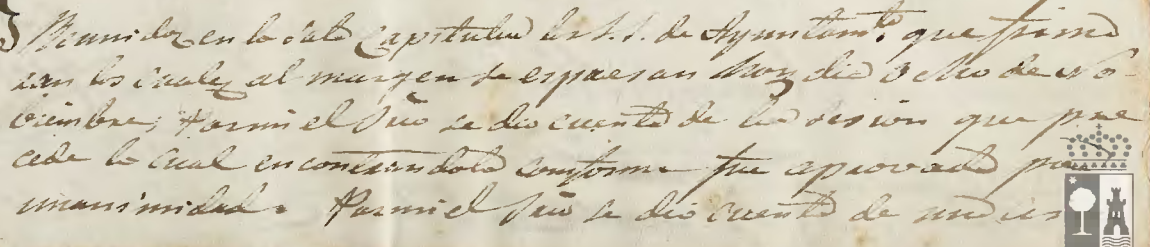 Reunidos en la Sala Capitular los S.S. de Ayuntamto. que firma
ran los cuales al margen se espresan hoy dia ocho de No-
biembre; Por mi el Srio se dio cuenta de la sesion que pre
cede la cual encontrandola conforme fue aprovada por
unanimidad. Por mi el Srio se dio cuenta de un